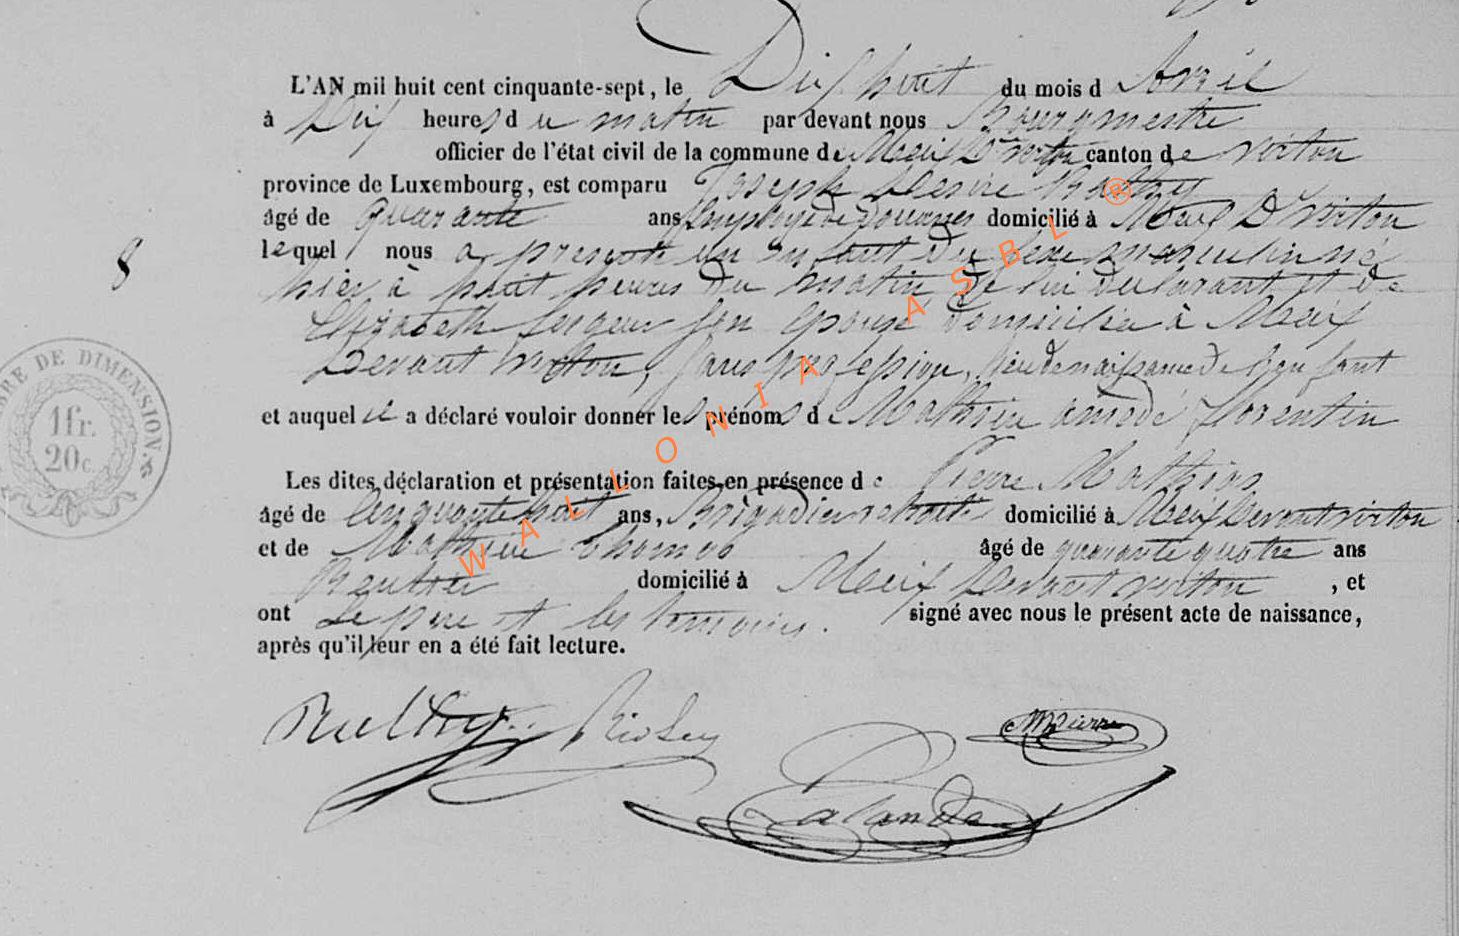 L'AN mil huit cent cinquante-sept, le Dix huit du mois d'Avril
à Dix heures du matin par devant nous Bourgmestre
officier de l'état civil de la commune de Meix Dt Virton canton de Virton
province de Luxembourg, est comparu Joseph Desiré
âgé de quarante ans, Employé de Douanes domicilié à Meix Dt Virton
lequel nous a presenté un enfant du sexe masculin né
hier à huit heures du matin de lui déclarant et de
Elizabeth son épouse domiciliée à Meix
Devant Virton, sans profession, lieu de naissance de l'enfant
et auquel il a déclaré vouloir donner les prénoms de Mathieu amedé florentin
Les dites déclaration et présentation faites en présence de Pierre Mathias
âgé de Cinquante huit ans, Brigadier retraité domicilié à Meix Devant virton
et de Mathieu thomas âgé de quarante quatre ans
Rentier domicilié à Meix Devant virton, et
ont Le père et les temoins. signé avec nous le présent acte de naissance,
après qu'il leur en a été fait lecture.
8
TIMBRE DE DIMENSION.
1fr.
20c.
MPierre
WALLONIA ASBL ®